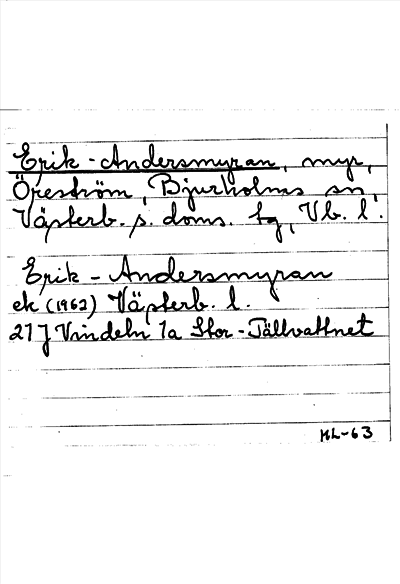 Erik-Andersmyran, myr,
Öreström, Bjurholms sn,
Västerb. s. doms. tg, Vb. l.
Erik-Andersmyran
ek (1962) Västerb. l.
21 J Vindeln 1a Stor-Tällvattnet
ML-63